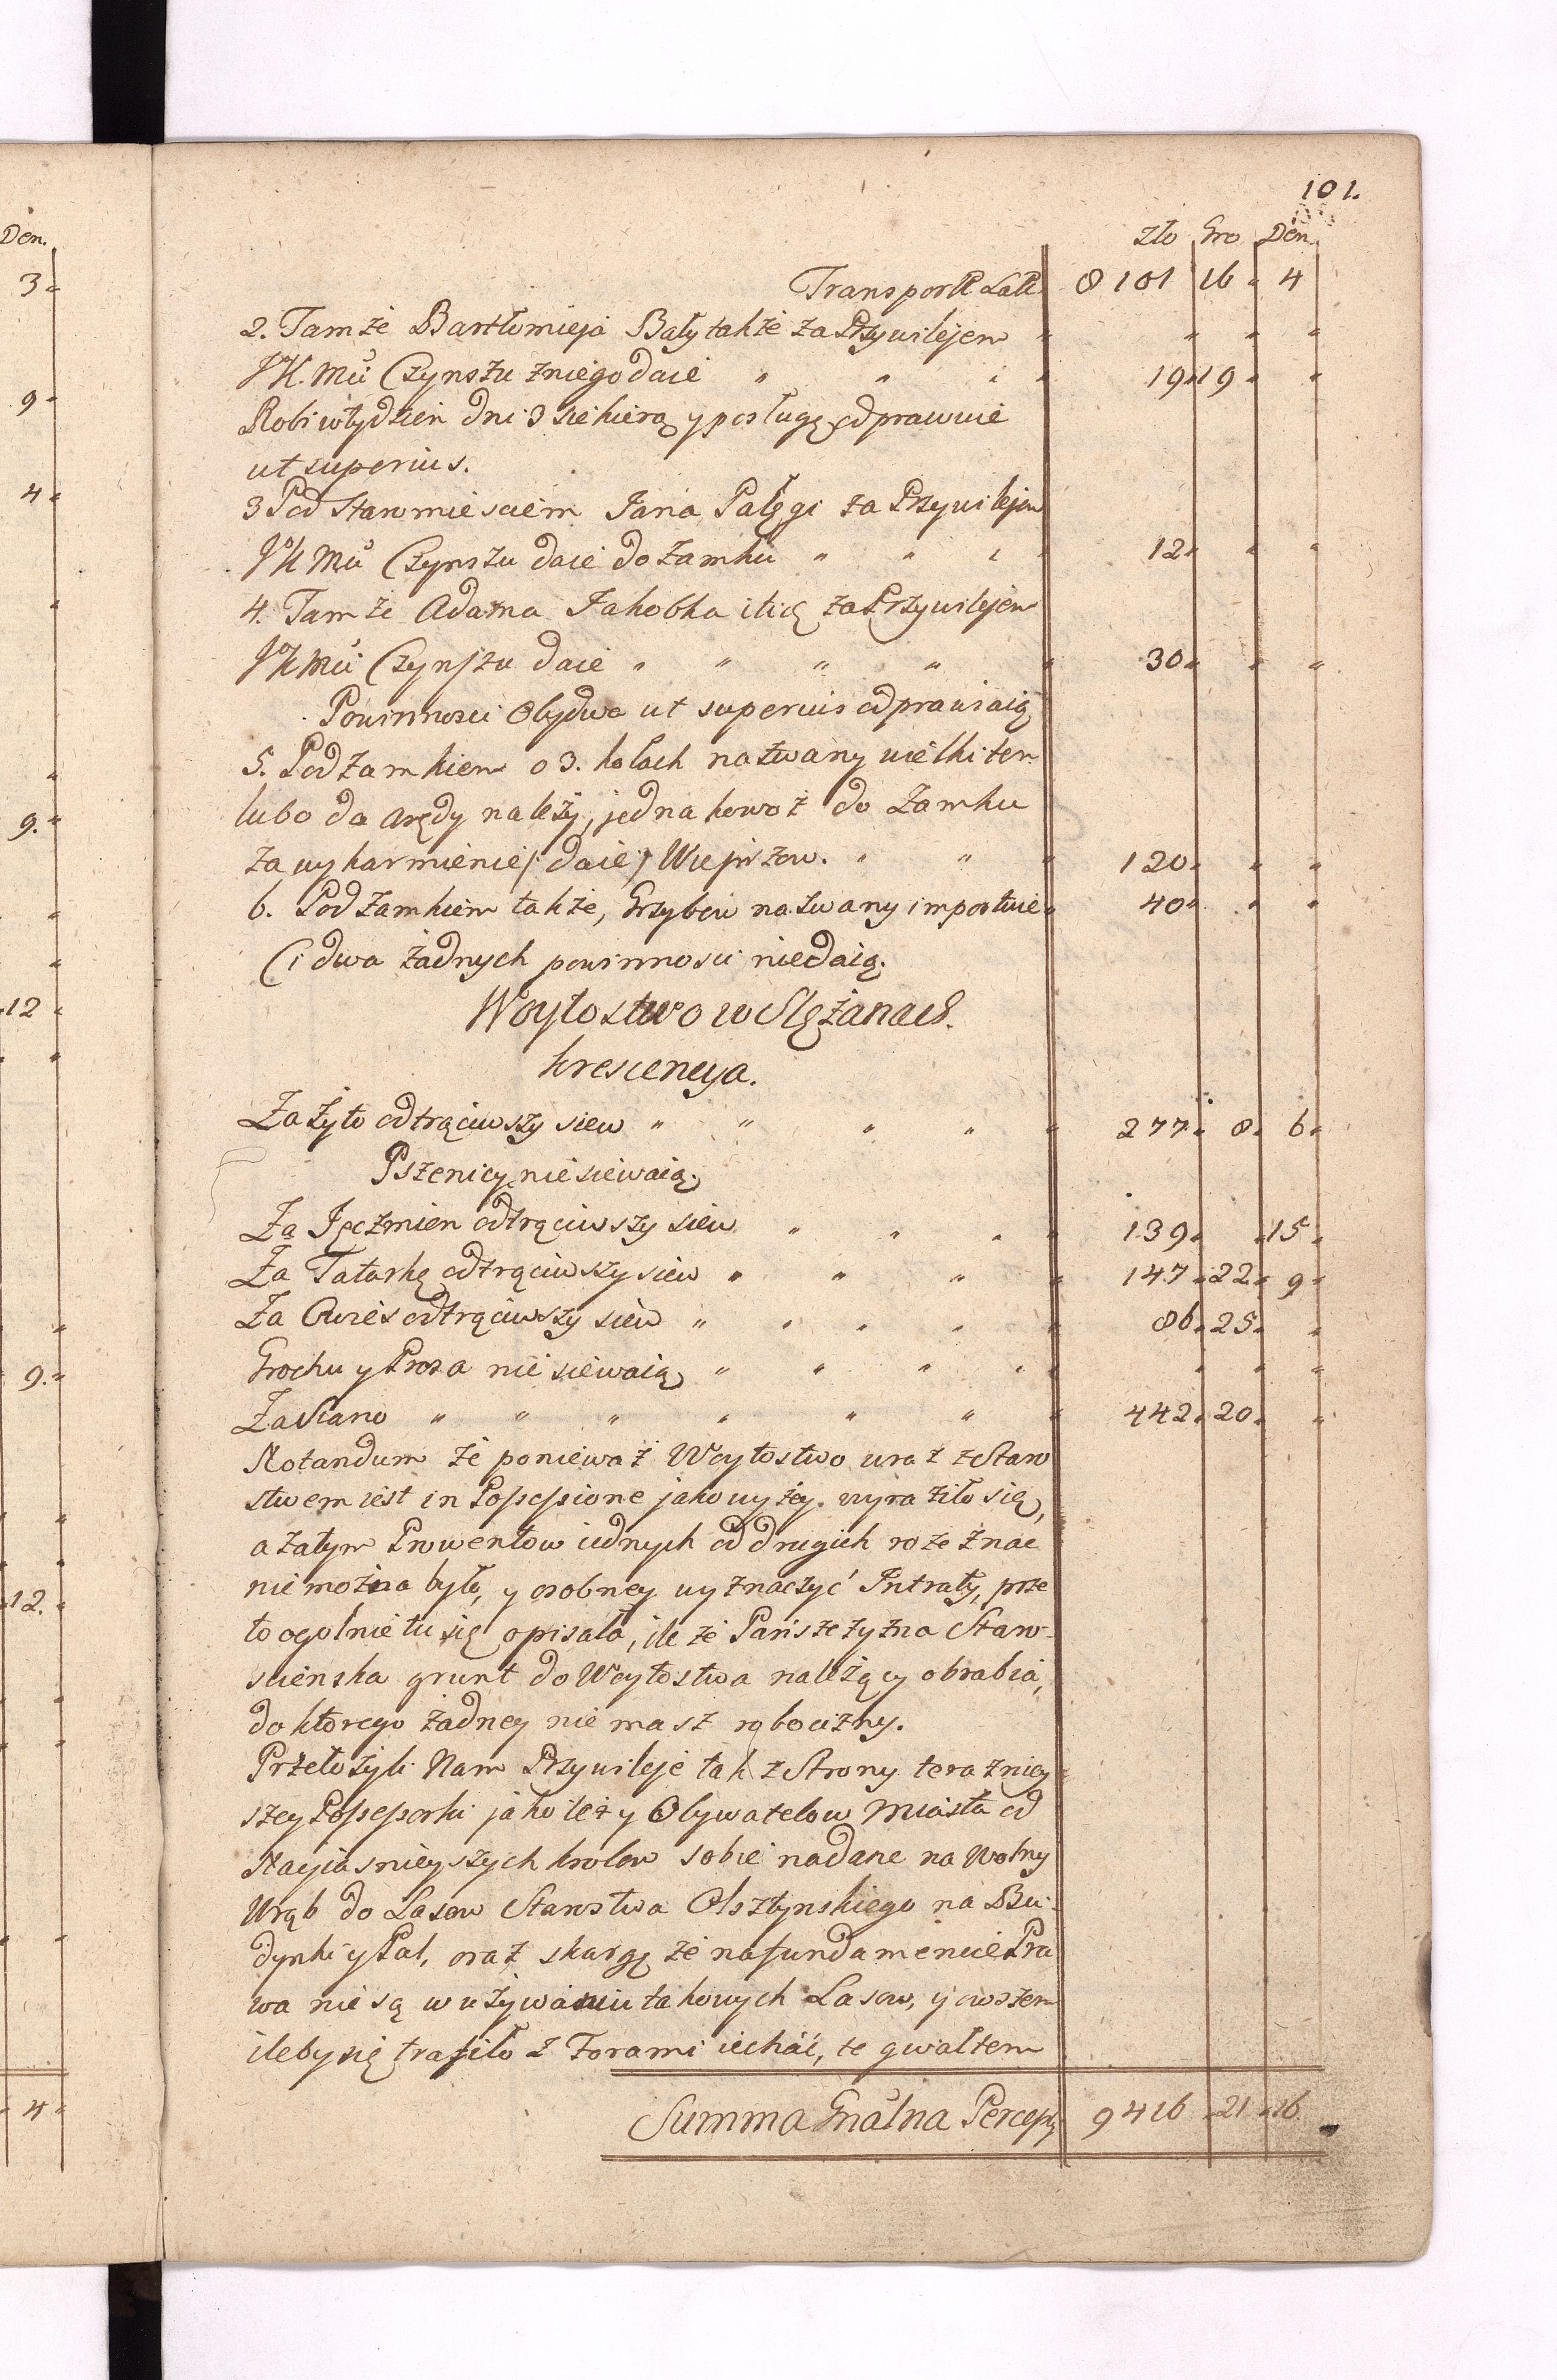 Den.
3
9
4
9.
12
9.
12.
4
101.
Zło Gro Den.
Transport Lat. 8101 16 4
2. Tamże Bartłomieja Bały także za Przywilejem
JK. Mći Czynszu zniego daie 19 19
Robi wtydzien dni 3 siekierą y posługę odprawuie
ut superius.
3 Pod Staromiesciem Jana Pałęgi za Przywilejem
JKMći Czynszu daie do Zamku 12
4. Tamże Adama Jakobka itię za Przywilejem
JKMći Czynszu daie 30
Powinnosci Obydwa ut superius odprawiaią
5. Pod Zamkiem o 3. kołach nazwany wielki ten
lubo do Arędy należy, jednakowoż do Zamku
za wykarmienie /: daie :/ Wieprzow. 120
6. Pod Zamkiem także, Grzybow nazwany importuie 40
Ci dwa żadnych powinnosci niedaią.
Woytostwo w Slężanach.
Krescencya.
Za żyto odtrąciwszy siew 277 8 6
Pszenicy nie siewaią.
Za Jęczmien odtrąciwszy siew 139 15
Za Tatarkę odtrąciwszy siew 147 22 9
Za Owies odtrąciwszy siew 86 25
Grochu y Prosa nie siewaią
Za Siano 442 20
Notandum że ponieważ Woytostwo wraz z Staro
stwem iest in Possessione jako wyżey wyraziło się,
a zatym Prowentow iednych od drugich rozeznac
nie można było, y osobney wyznaczyć Intraty, prze
to ogolnie tu się opisało, ile że Pańszczyzna Staro-
scienska grunt do Woytostwa należący obrabia,
do ktorego żadney nie masz robocizny.
Przełożyli Nam Przywileje tak z Strony terazniey
szey Possessorki jako też y Obywatelow Miasta od
Nayiasnieyszych Krolow sobie nadane na Wolny
Wrąb do Lasow Starostwa Olsztynskiego na Bu-
dynki y Pal, oraz skargę że na fundamencie Pra
wa nie są w używaniu takowych Lasow, y owszem
ileby się trafiło z Torami iechać, te gwałtem
Summa Gnalna Percepty 9416 21 16